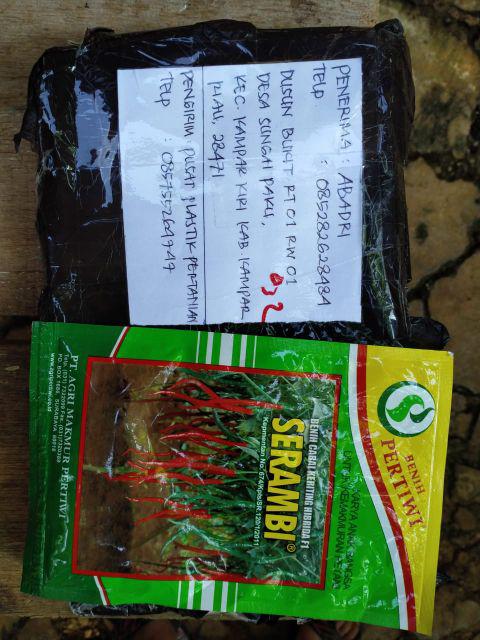 PENERIMA : ABADRI
TELP : 085282628484
DUSUN BUKIT RT 01 RW 01
DESA SUNGAI PAKU,
KEC. KAMPAR KIRI KAB. KAMPAR
RIAU, 28471
PENGIRIM : PUSAT PLASTIK PERTANIAN
TELP : 085755261949
BENIH
PERTIWI
UNTUK KEMAKMURAN
BENIH CABAI KERITING HIBRIDA F1
SERAMBI®
PT. AGRI MAKMUR PERTIWI
PO. BOX 1686, SURABAYA